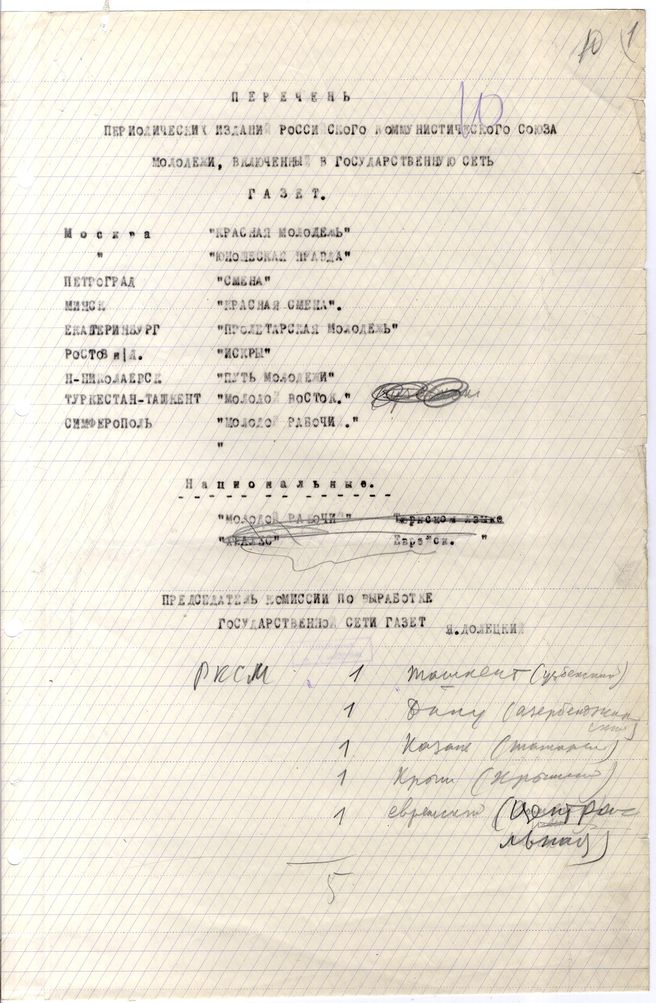 10 1
10
ПЕРЕЧЕНЬ
ПЕРИОДИЧЕСКИХ ИЗДАНИЙ РОССИЙСКОГО КОММУНИСТИЧЕСКОГО СОЮЗА
МОЛОДЕЖИ, ВКЛЮЧЕННЫЙ В ГОСУДАРСТВЕННУЮ СЕТЬ
ГАЗЕТ.
Москва "КРАСНАЯ МОЛОДЕЖЬ"
" "ЮНОШЕСКАЯ ПРАВДА"
ПЕТРОГРАД "СМЕНА"
МИНСК "КРАСНАЯ СМЕНА".
ЕКАТЕРИНБУРГ "ПРОЛЕТАРСКАЯ МОЛОДЕЖЬ"
РОСТОВ н/Д. "ИСКРЫ"
Н-НИКОЛАЕРСК "ПУТЬ МОЛОДЕЖИ"
ТУРКЕСТАН-ТАШКЕНТ "МОЛОДОЙ ВОСТОК."
СИМФЕРОПОЛЬ "МОЛОДОЙ РАБОЧИЙ."
"
Национальные.
"МОЛОДОЙ РАБОЧИЙ" Тюркском языке
Еврейск. "
ПРЕДСЕДАТЕЛЬ КОМИССИИ ПО ВЫРАБОТКЕ
ГОСУДАРСТВЕННОЙ СЕТИ ГАЗЕТ Я.ДОЛЕЦКИЙ
РКСМ 1 Ташкент (узбекский)
1 Баку (азербейджанский)
1 Казань (татарск)
1 Крым (Крымский)
1 еврейский (Центральный)
5